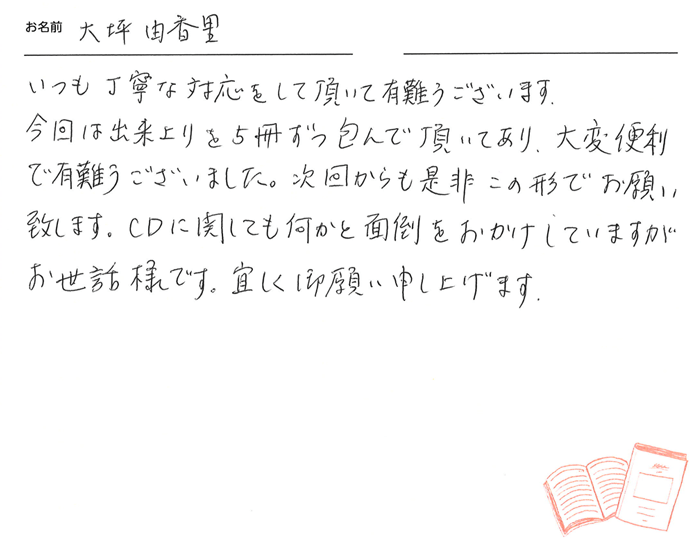 お名前 大坪 由香里
いつも丁寧な対応をして頂いて有難うございます.
今回は出来上りを5冊ずつ包んで頂いてあり、大変便利
で有難うございました。次回からも是非この形でお願い
致します。CDに関しても何かと面倒をおかけしていますが
お世話様です。宜しく御願い申し上げます.